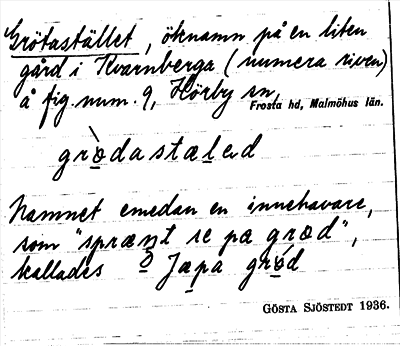 Grötastället, öknamn på en liten
gård i Kvarnberga (numera riven)
å fig. num. 9, Hörby sn,
Frosta hd, Malmöhus län.
grodastæled
Namnet emedan en innehavare,
som "sprænt se pa græd",
kallades Japa gröd
GÖSTA SJÖSTEDT 1936.